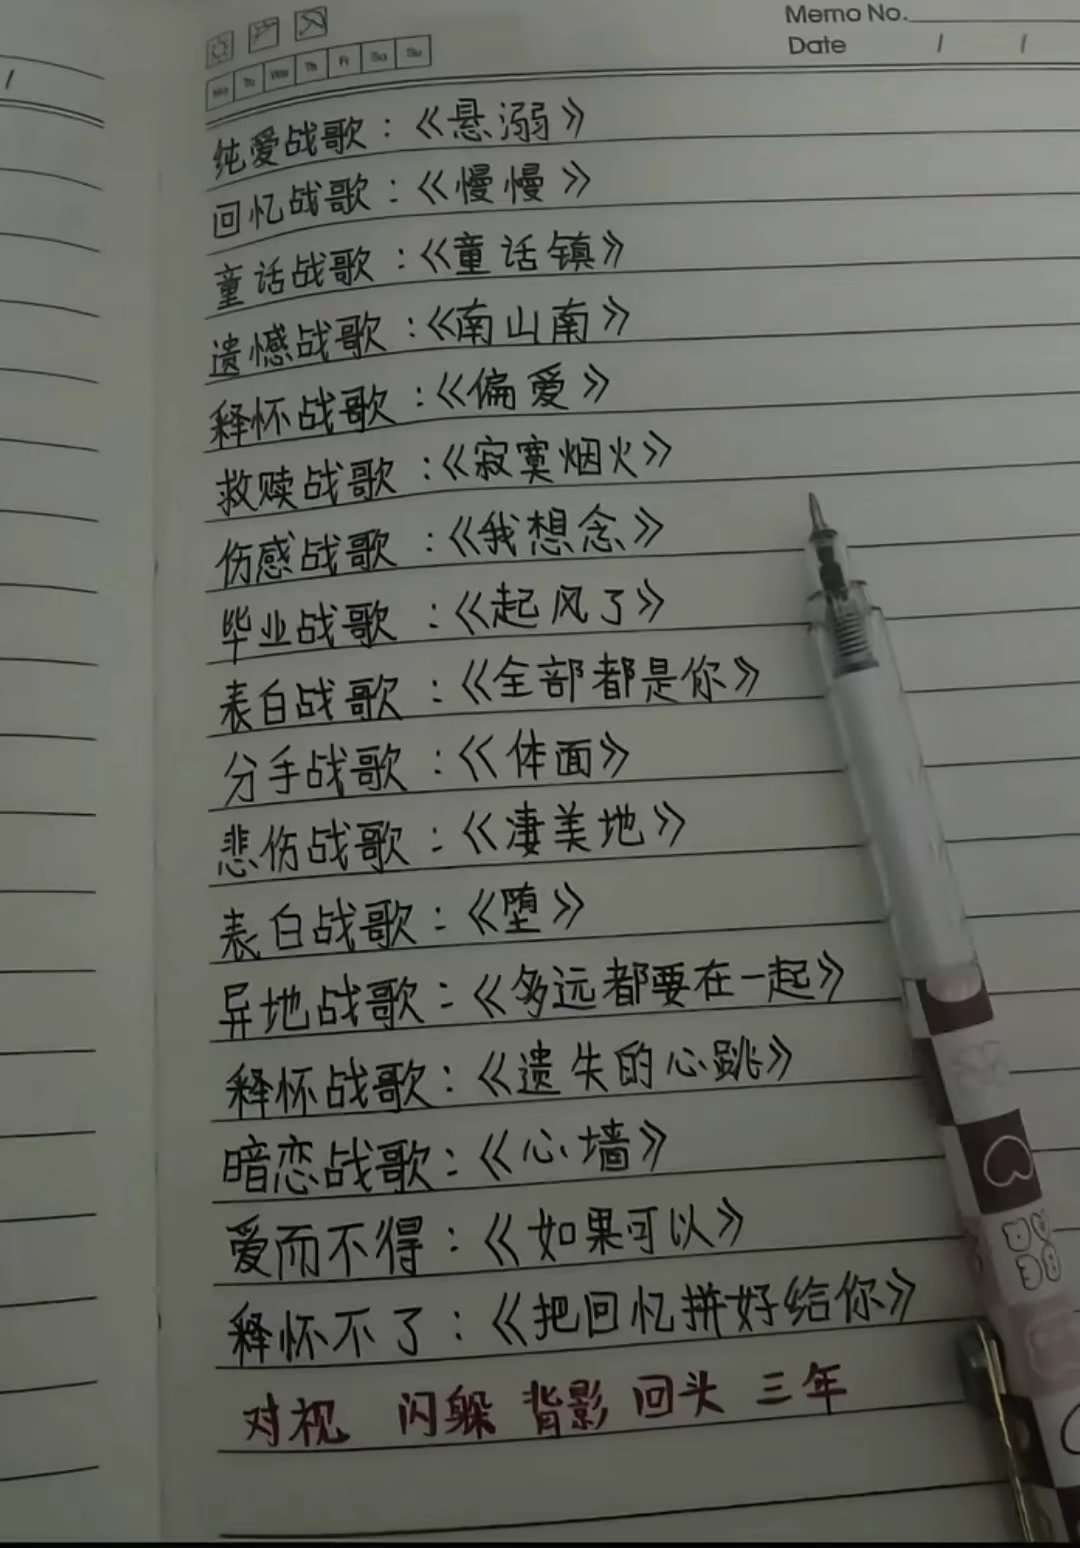 Memo No.
Date / /
Mo Tu We Th Fr Sa Su
纯爱战歌：《悬溺》
回忆战歌：《慢慢》
童话战歌：《童话镇》
遗憾战歌：《南山南》
释怀战歌：《偏爱》
救赎战歌：《寂寞烟火》
伤感战歌：《我想念》
毕业战歌：《起风了》
表白战歌：《全部都是你》
分手战歌：《体面》
悲伤战歌：《凄美地》
表白战歌：《堕》
异地战歌：《多远都要在一起》
释怀战歌：《遗失的心跳》
暗恋战歌：《心墙》
爱而不得：《如果可以》
释怀不了：《把回忆拼好给你》
对视 闪躲 背影 回头 三年